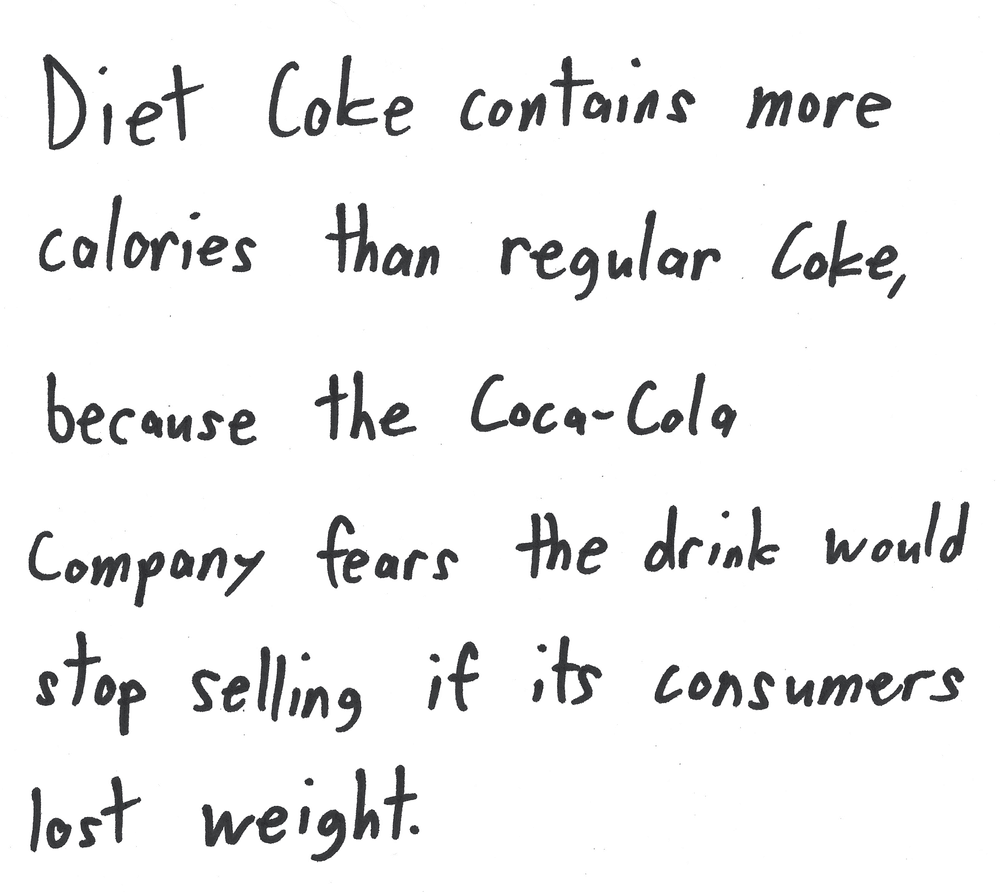 Diet Coke contains more
calories than regular Coke,
because the Coca-Cola
Company fears the drink would
stop selling if its consumers
lost weight.